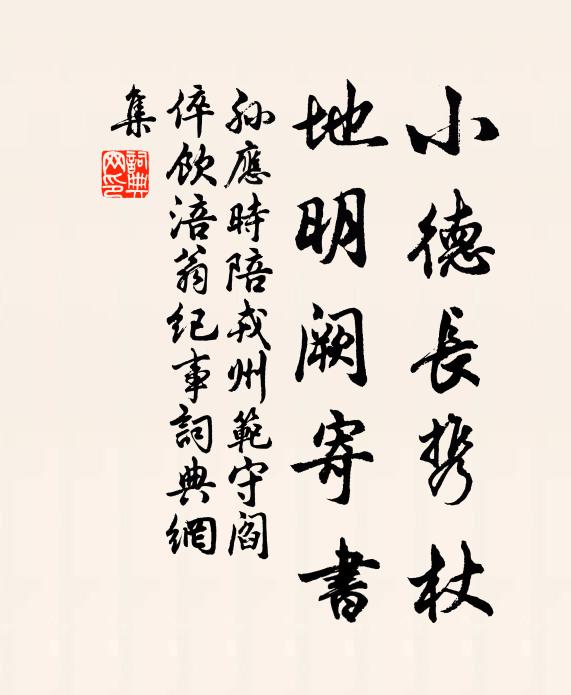 小德長携杖
地明阙寄書
孙應時陪戎州範守阎
倅飲涪翁纪事詞典網
集
詞典
网印